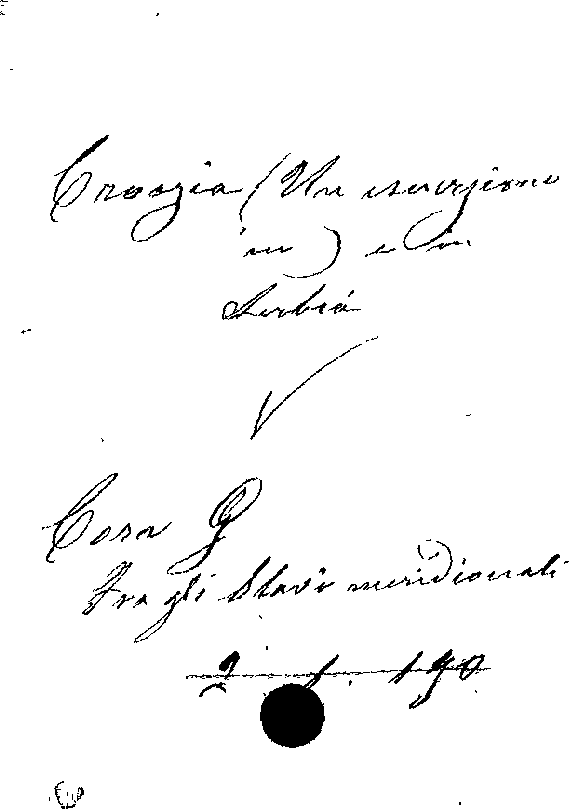 Croazia (Un escursione
in) e in
Serbia
Cora G
Fra gli Slavi meridionali
2. f. 190